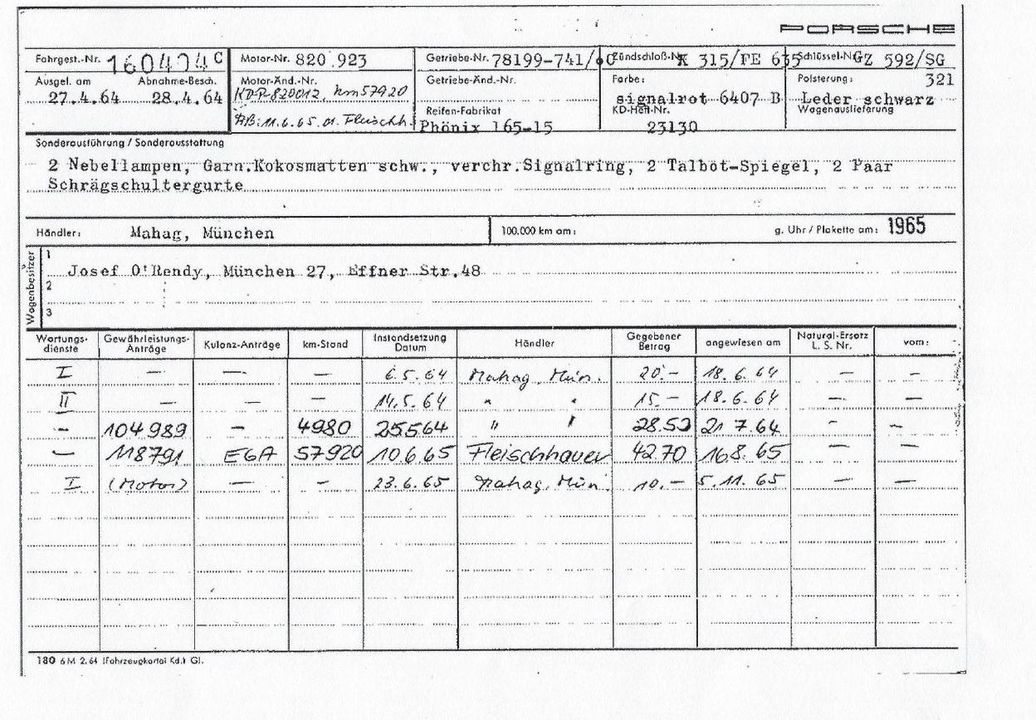 PORSCHE
Fahrgest.-Nr. 160404 C Motor-Nr. 820 923 Getriebe-Nr. 78199-741/ Zündschloß-Nr. K 315/FE 635 Schlüssel-Nr. GZ 592/SG
Ausgel. am Abnahme-Besch. Motor-Änd.-Nr. Getriebe-Änd.-Nr. Farbe: Polsterung: 321
27.4.64 28.4.64 KDR 820012, km 57920 signalrot 6407 B Leder schwarz
AB: 11.6.65 Fleischh. Reifen-Fabrikat KD-Heft-Nr. Wagenauslieferung
Phönix 165-15 23130
Sonderausführung / Sonderausstattung
2 Nebellampen, Garn.Kokosmatten schw., verchr.Signalring, 2 Talbot-Spiegel, 2 Paar
Schrägschultergurte
Händler: Mahag, München 100.000 km am: g. Uhr / Plakette am: 1965
Wagenbesitzer
1 Josef O'Rendy, München 27, Effner Str.48
2
3
Wartungs-dienste Gewährleistungs-Anträge Kulanz-Anträge km-Stand Instandsetzung Datum Händler Gegebener Betrag angewiesen am Natural-Ersatz L. S. Nr. vom:
I — — — 6.5.64 Mahag, Mün. 20.- 18.6.64 — —
II — — — 14.5.64 " " 15.- 18.6.64 - —
- 104989 - 4980 25564 " " 28.50 21 7.64 - -
- 118791 EGA 57920 10.6.65 Fleischhauer 42.70 16.8.65 - —
I (Motor) — - 23.6.65 Mahag, Mün. 10.- 5.11.65 — —
180 6 M 2.64 (Fahrzeugkartei Kd.) Gl.